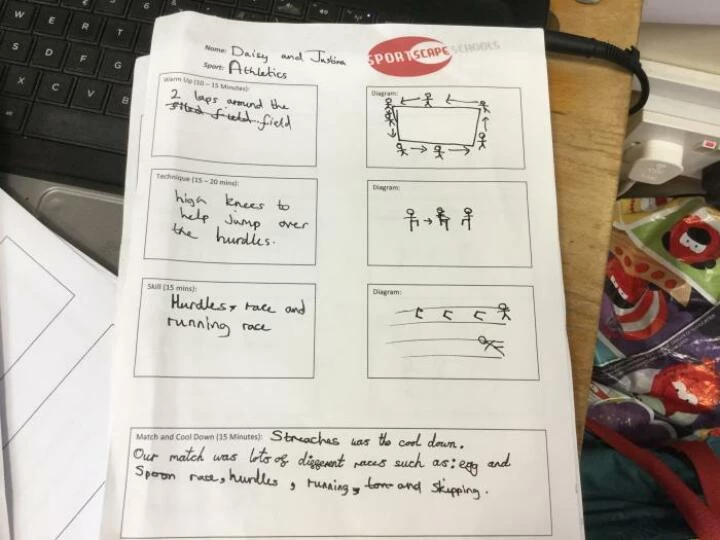 Name: Daisy and Justina
Sport: Athletics
SPORTSCAPE SCHOOLS
Warm Up (10 – 15 Minutes):
2 laps around the
field field
Diagram:
Technique (15 – 20 mins):
high knees to
help jump over
the hurdles.
Diagram:
Skill (15 mins):
Hurdles, race and
running race
Diagram:
Match and Cool Down (15 Minutes): Streaches was the cool down.
Our match was lots of different races such as: egg and
Spoon race, hurdles, running, and skipping.
W E R T
S D F G
X C V B